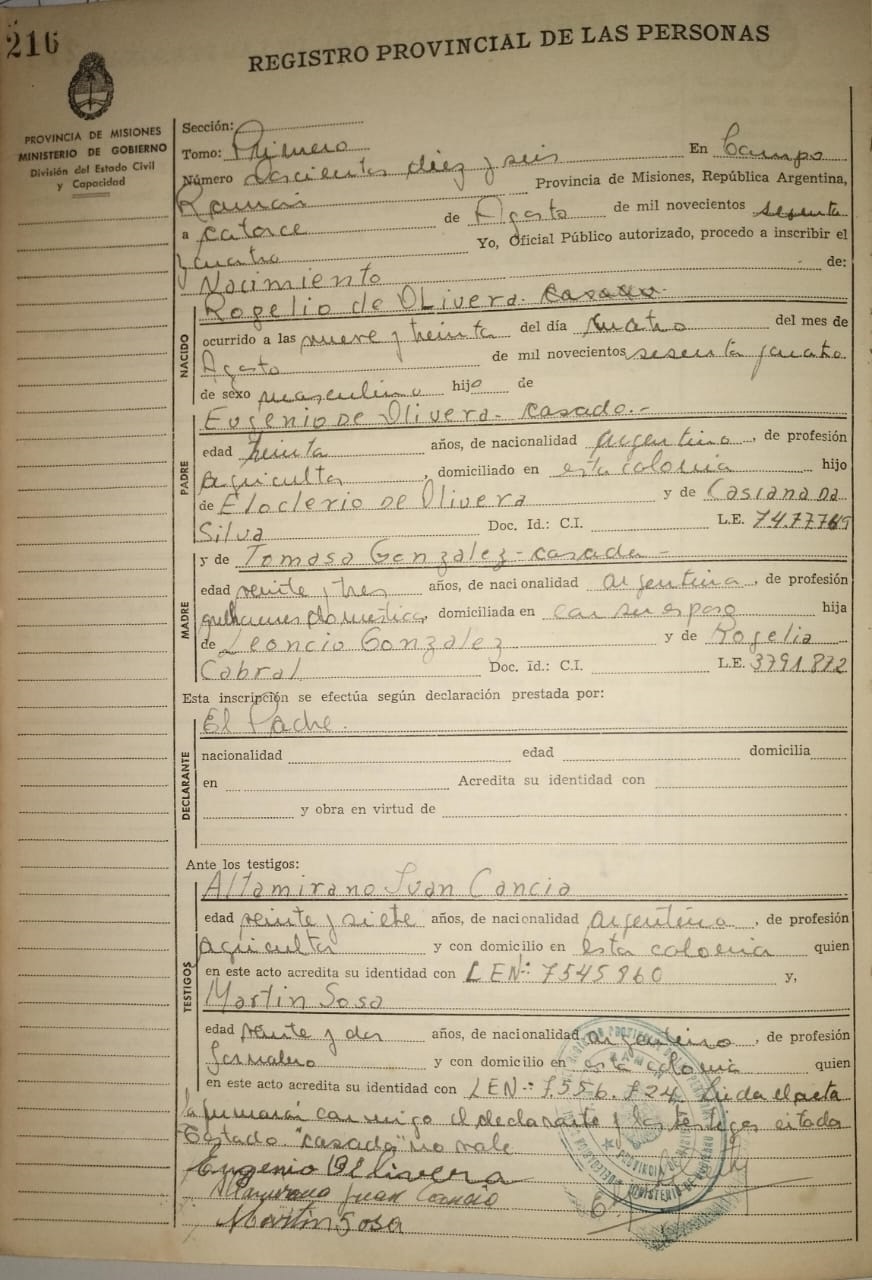 216
REGISTRO PROVINCIAL DE LAS PERSONAS
PROVINCIA DE MISIONES
MINISTERIO DE GOBIERNO
División del Estado Civil
y Capacidad
Sección:
Tomo: Primero
Número Doscientos diez y seis En Campo
Ramon Provincia de Misiones, República Argentina,
a catorce de Agosto de mil novecientos sesenta
y cuatro Yo, Oficial Público autorizado, procedo a inscribir el
Nacimiento de:
NACIDO
Rogelio de Olivera casado
ocurrido a las nueve y treinta del día cuatro del mes de
Agosto de mil novecientos sesenta y cuatro
de sexo masculino hijo de
PADRE
Eugenio de Olivera - casado.-
edad treinta años, de nacionalidad argentino, de profesión
agricultor, domiciliado en esta colonia hijo
de Eloclerio de Olivera y de Casiana Da
Silva Doc. Id.: C.I. L.E. 7477769
MADRE
y de Tomasa Gonzalez - casada -
edad veinte y tres años, de nacionalidad argentina, de profesión
quehaceres domesticos, domiciliada en con su esposo hija
de Leoncio Gonzalez y de Rogelia
Cabral Doc. Id.: C.I. L.E. 3791.872
Esta inscripción se efectúa según declaración prestada por:
DECLARANTE
El Padre.
nacionalidad edad domicilia
en Acredita su identidad con
y obra en virtud de
Ante los testigos:
TESTIGOS
Altamirano Juan Cancio
edad veinte y siete años, de nacionalidad argentino, de profesión
agricultor y con domicilio en esta colonia quien
en este acto acredita su identidad con L E Nº: 7545860 y,
Martin Sosa
edad veinte y dos años, de nacionalidad argentino, de profesión
Jornalero y con domicilio en esta colonia quien
en este acto acredita su identidad con L E Nº: 7.556.724 Leida el acta
la firmaran conmigo el declarante y los testigos citado
Testado "casado" no vale
Eugenio D Olivera
Altamirano Juan Cancio
Martin Sosa
PROVINCIA DE MISIONES
MINISTERIO DE GOBIERNO